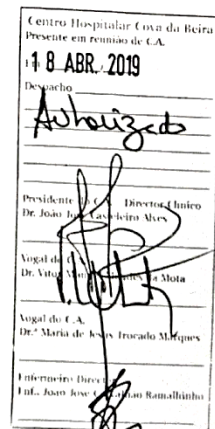 Centro Hospitalar Cova da Beira
Presente em reunião de C.A.
18 ABR. 2019
Despacho
Autorizado
Presidente do C.A. Director Clínico
Dr. João José Casteleiro Alves
Vogal do C.A.
Dr. Vitor da Mota
Vogal do C.A.
Dr.ª Maria de Jesus Trocado Marques
Enfermeiro Director
Enf.. João José Ramalhinho